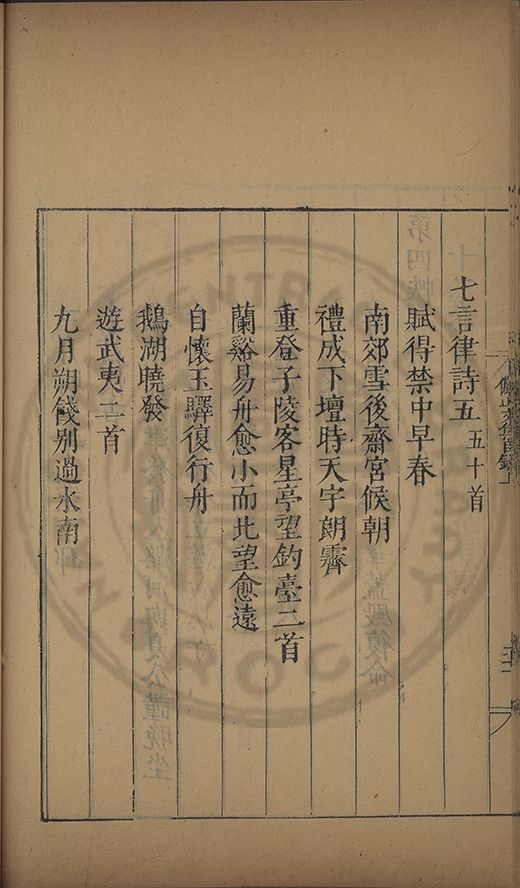 七言律詩五 五十首
賦得禁中早春
南郊雪後齋宮候朝
禮成下壇時天宇朗霽
重登子陵客星亭望釣臺二首
蘭谿易舟愈小而北望愈遠
自懷玉驛復行舟
鵝湖曉發
遊武夷二首
九月朔餞別過水南